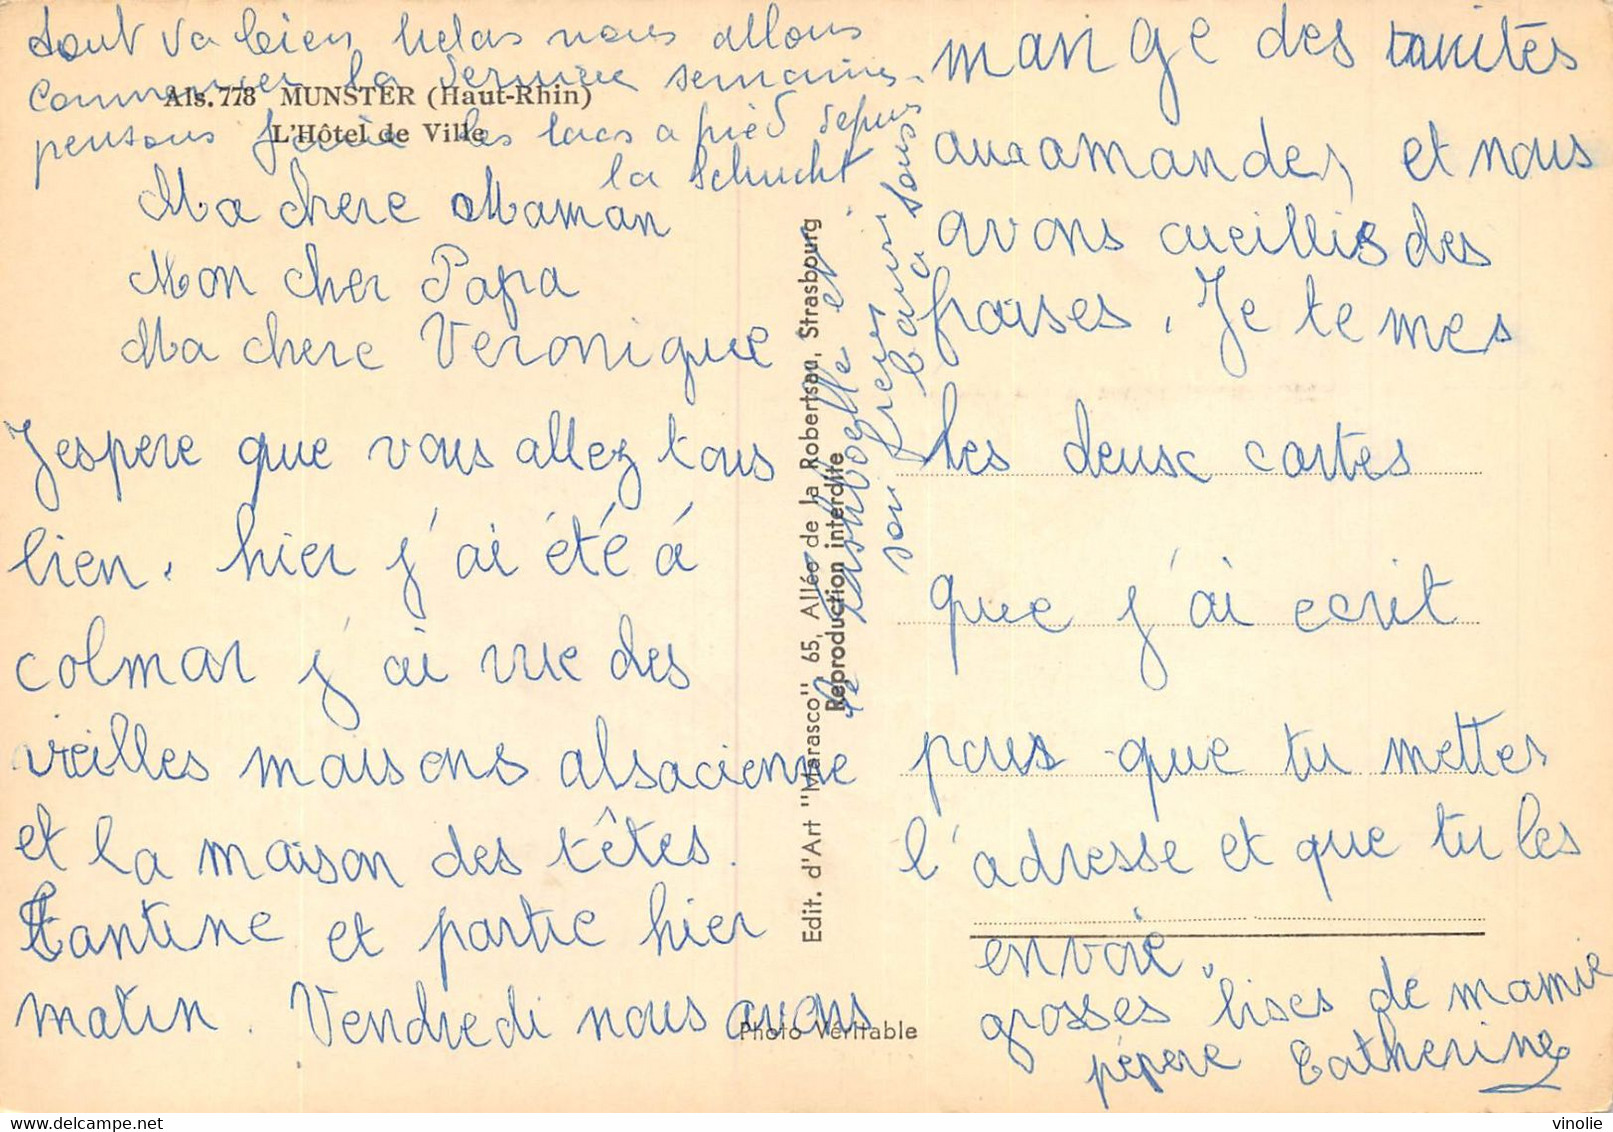 tout va bien helas nous allons
commencer la derniere semaine.
pensons faire les lacs a pied depuis
la Schlucht
Als. 778 MUNSTER (Haut-Rhin)
L'Hôtel de Ville
Ma chere Maman
Mon cher Papa
Ma chere Veronique
J'espere que vous allez tous
bien. hier j'ai été á
colmar j'ai vue des
vieilles maisons alsacienne
et la maison des têtes.
tantine et partie hier
matin. Vendredi nous avons
Edit. d'Art "Marasco" 65, Allée de la Robertsau, Strasbourg
Reproduction interdite
Photo Véritable
le et
sous
mangé des truites
aux amandes et nous
avons cueillis des
fraises. Je te mes
les deux cartes
que j'ai ecrit
pour que tu mettes
l'adresse et que tu les
envoie.
grosses bises de mamie
pépere Catherine
vinolie